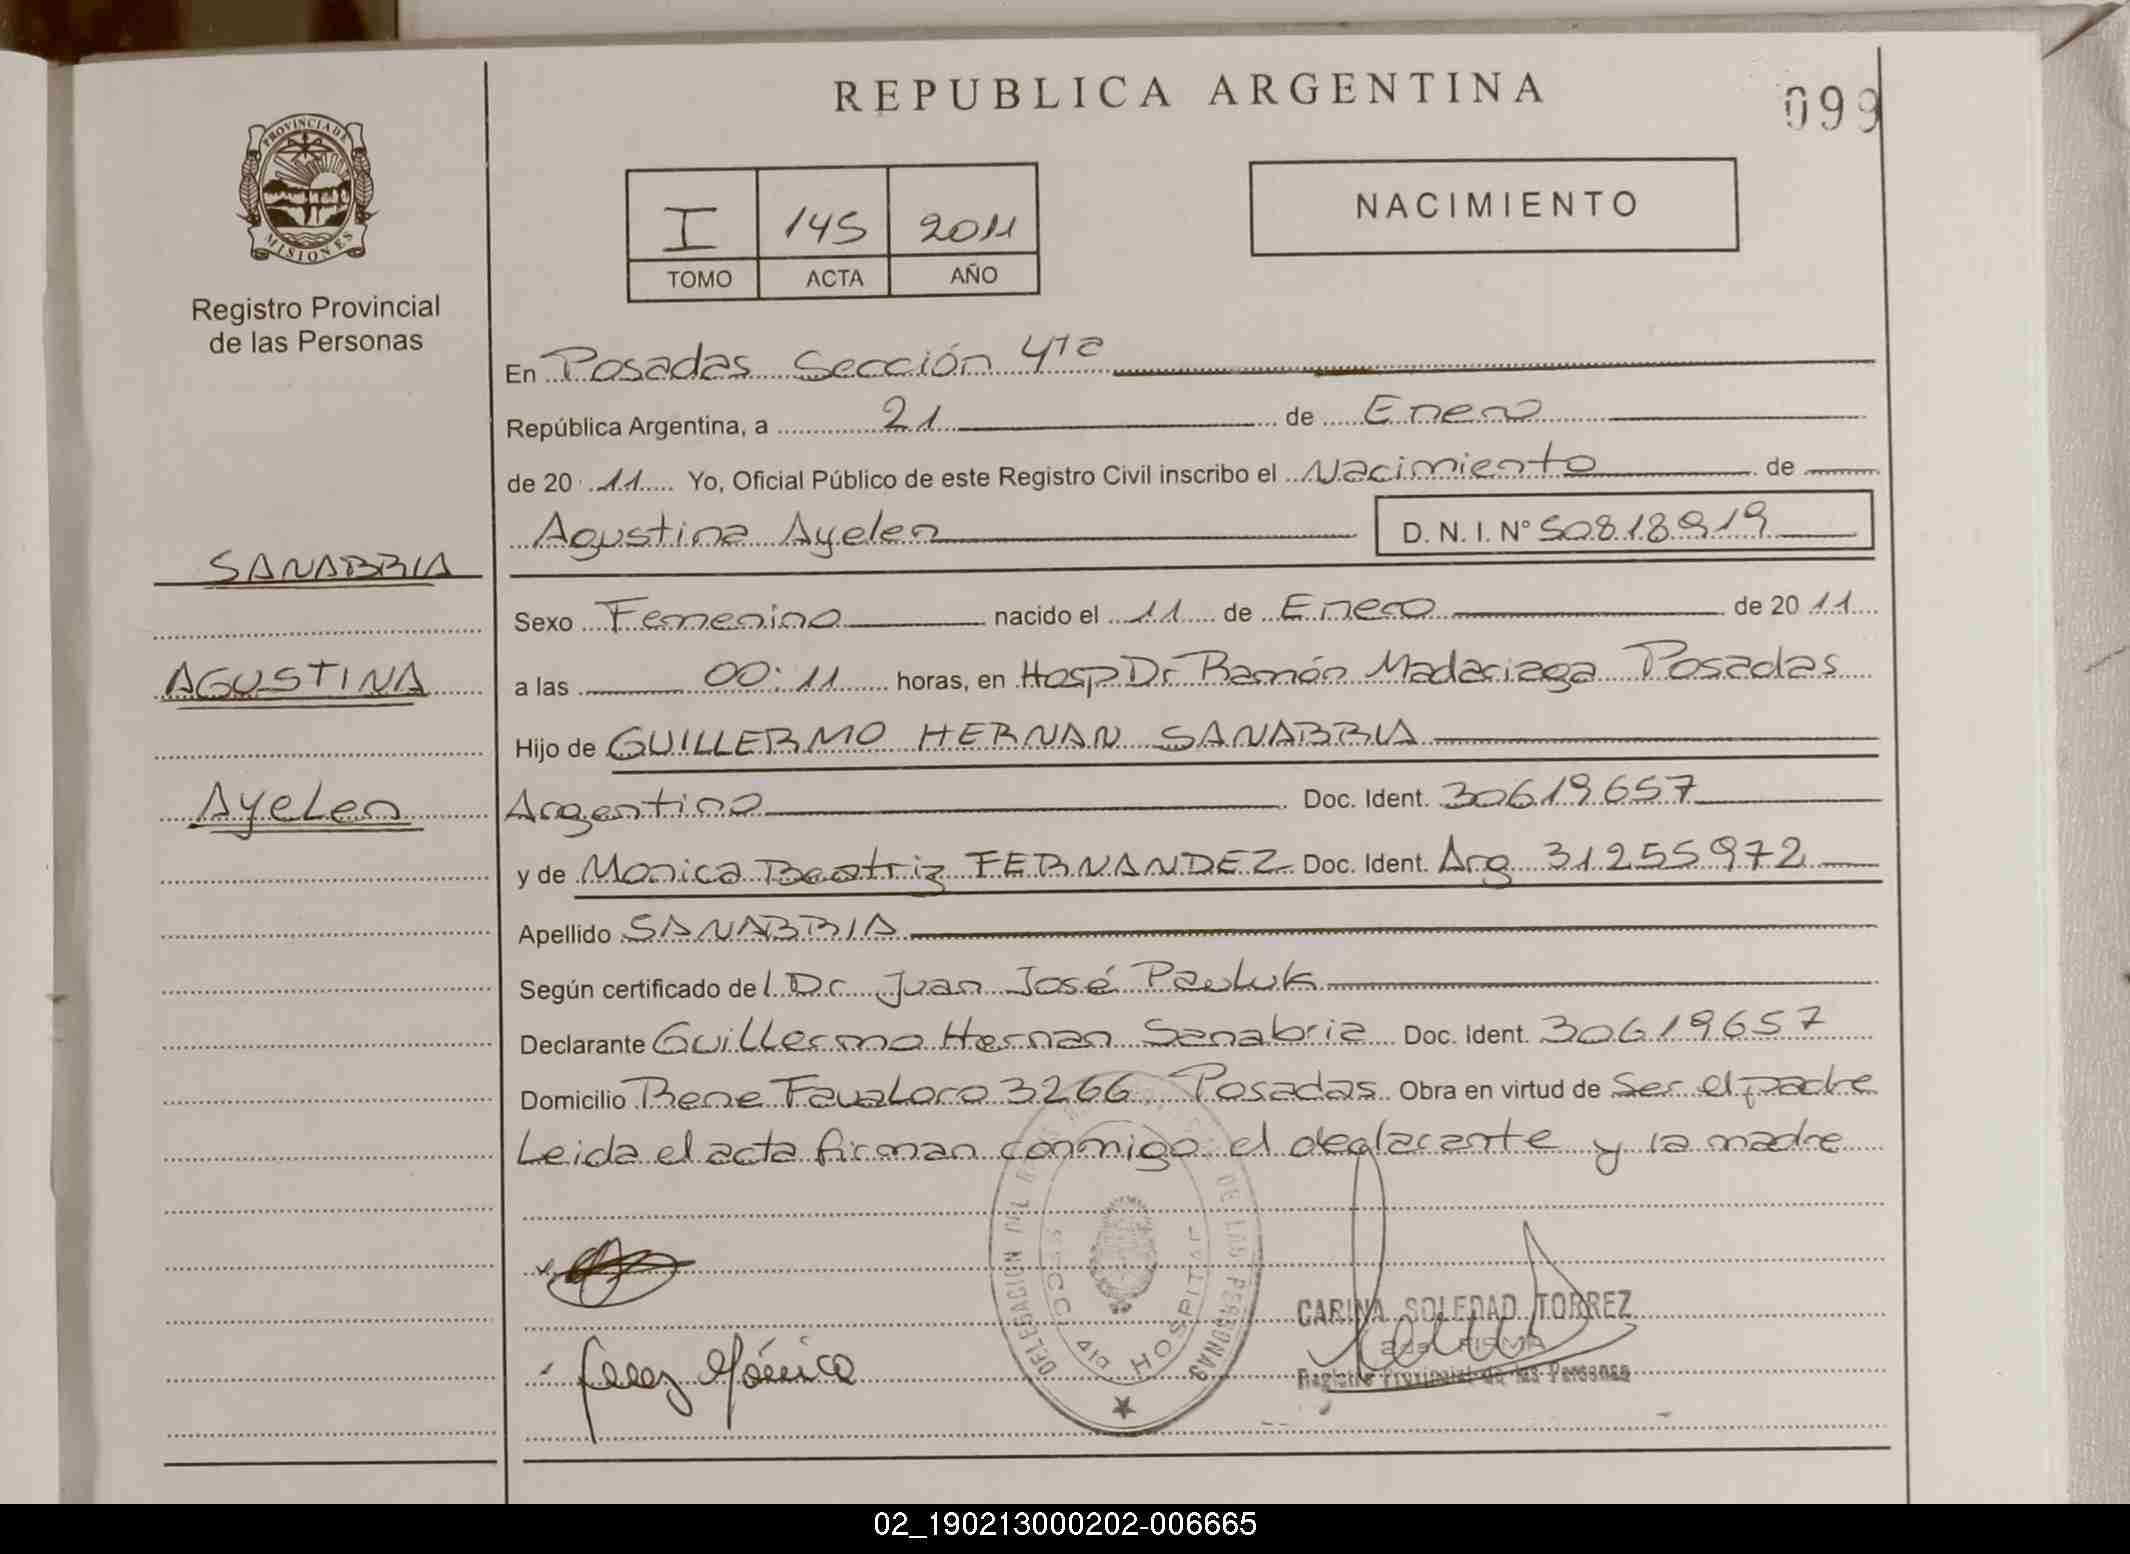 REPUBLICA ARGENTINA
099
PROVINCIA DE
MISIONES
Registro Provincial
de las Personas
I 145 2011
TOMO ACTA AÑO
NACIMIENTO
En Posadas Sección 4ta
República Argentina, a 21 de Enero
de 20 11 Yo, Oficial Público de este Registro Civil inscribo el Nacimiento de
Agustina Ayelen D. N. I. N° 50818919
SANABRIA
AGUSTINA
Ayelen
Sexo Femenino nacido el 11 de Enero de 20 11
a las 00:11 horas, en Hosp Dr Ramón Madariaga Posadas
Hijo de GUILLERMO HERNAN SANABRIA
Argentino Doc. Ident. 30619657
y de Monica Beatriz FERNANDEZ Doc. Ident. Arg 31255972
Apellido SANABRIA
Según certificado del Dr Juan José Pauluk
Declarante Guillermo Hernan Sanabria Doc. Ident. 30619657
Domicilio Rene Favaloro 3266 Posadas Obra en virtud de Ser el padre
Leida el acta firman conmigo el deglarante y la madre
DELEGACION DEL DE LAS PERSONAS
SECC 4ta HOSPITAL
CARINA SOLEDAD TORREZ
2da FIRMA
Registro Provincial de las Personas
Mónica
02_190213000202-006665